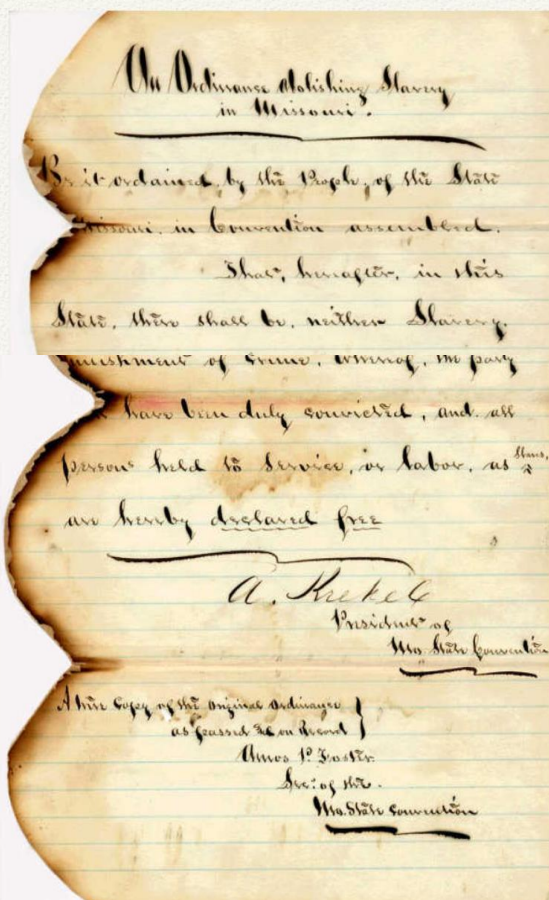 An Ordinance abolishing Slavery
in Missouri.
Be it ordained, by the People, of the State
Missouri, in Convention assembled.
That, hereafter, in this
State, there shall be, neither Slavery,
punishment of crime, whereof, the party
have been duly convicted, and all
persons held to Service, or labor, as Slaves,
are hereby declared free
A. Krekel
President of
Mo. State Convention
A true Copy of the original ordinance
as passed & on Record
Amos P. Foster
Sec: of the
Mo. State Convention